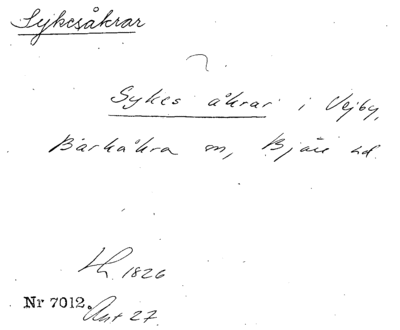 Sykesåkrar
Sykes åkrar i Vejby,
Barkåkra sn, Bjäre hd.
Lh. 1826
Nr 7012. Akt 27